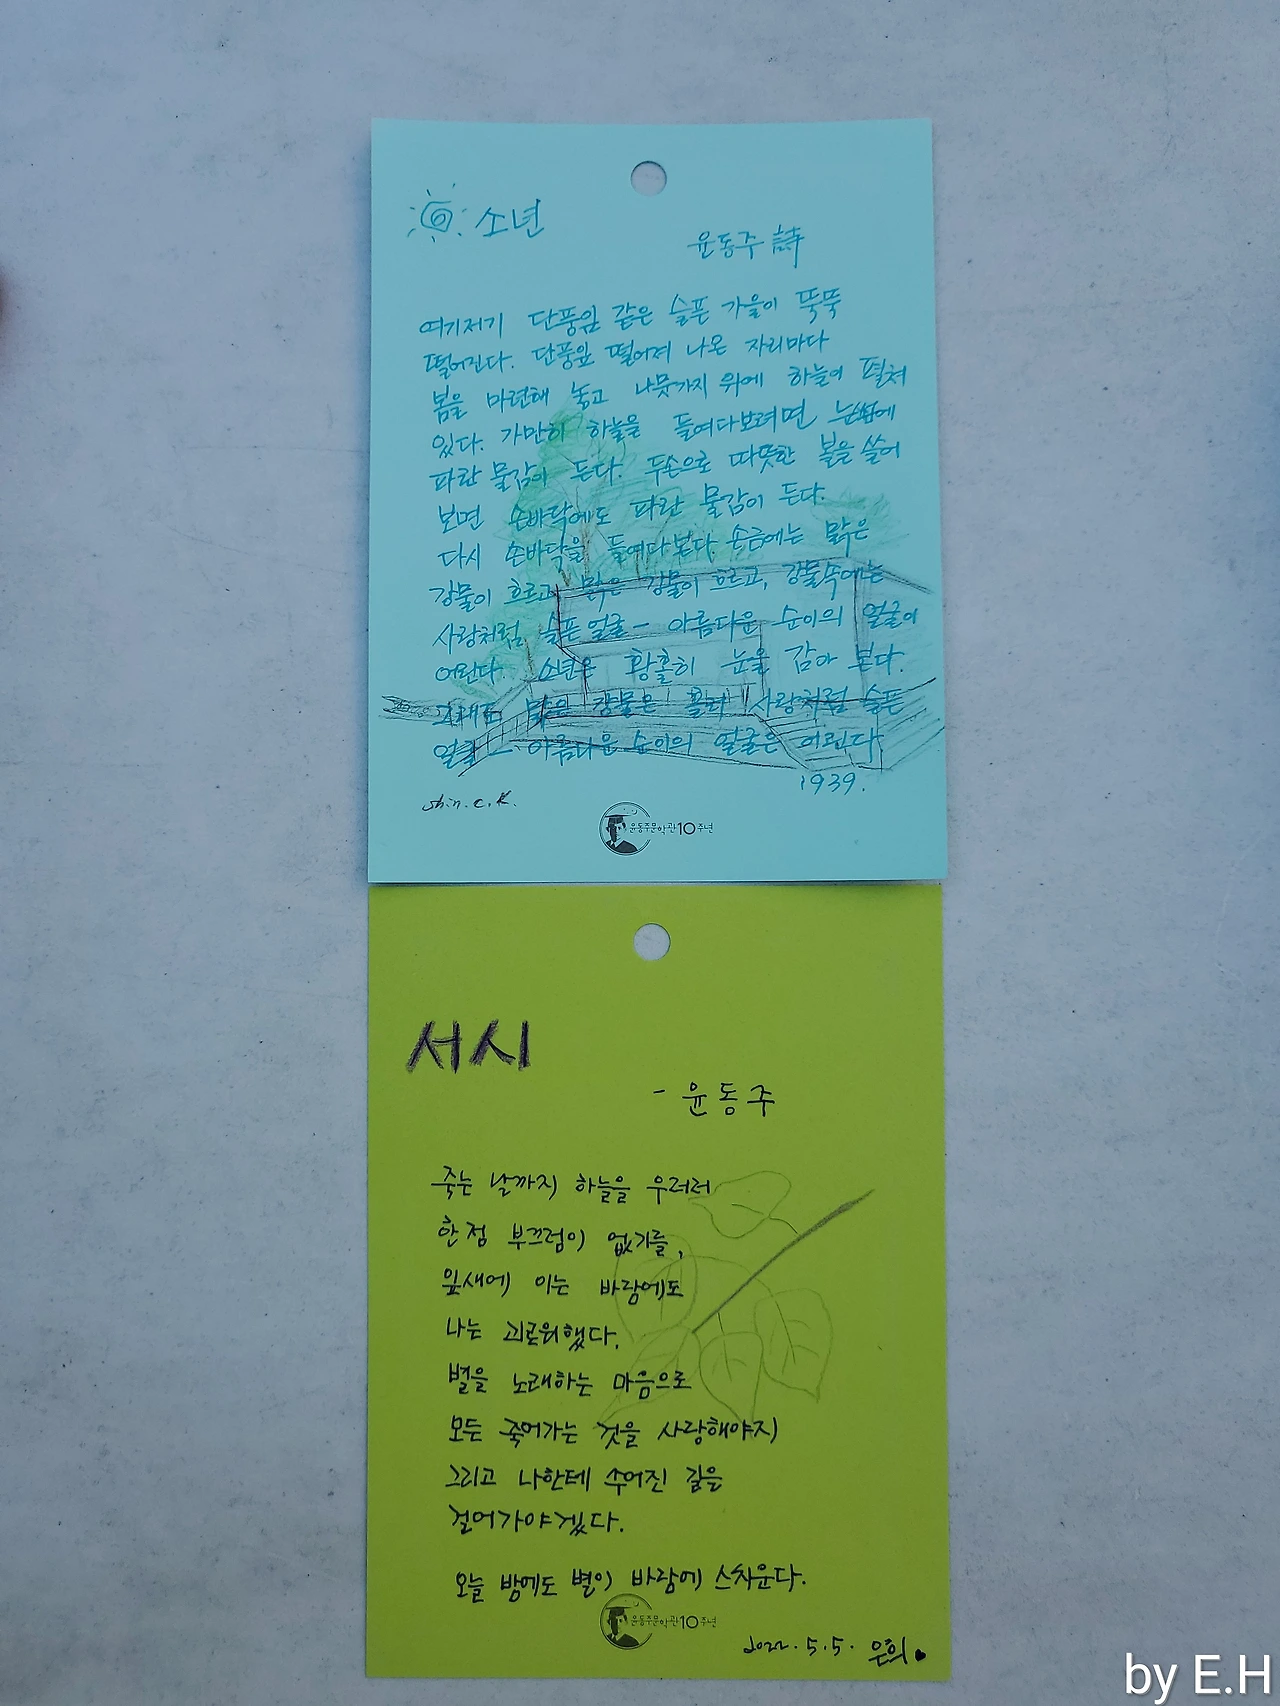 소년
윤동주 詩
여기저기 단풍잎 같은 슬픈 가을이 뚝뚝
떨어진다. 단풍잎 떨어져 나온 자리마다
봄을 마련해 놓고 나뭇가지 위에 하늘이 펼쳐
있다. 가만히 하늘을 들여다보려면 눈썹에
파란 물감이 든다. 두손으로 따뜻한 볼을 쓸어
보면 손바닥에도 파란 물감이 든다.
다시 손바닥을 들여다본다. 손금에는 맑은
강물이 흐르고, 맑은 강물이 흐르고, 강물속에는
사랑처럼 슬픈얼굴- 아름다운 순이의 얼굴이
어린다. 소년은 황홀히 눈을 감아 본다.
그래도 맑은 강물은 흘러 사랑처럼 슬픈
얼굴- 아름다운 순이의 얼굴은 어린다
1939.
shin.c.K.
윤동주문학관10주년
서시
- 윤동주
죽는 날까지 하늘을 우러러
한점 부끄럼이 없기를,
잎새에 이는 바람에도
나는 괴로워했다.
별을 노래하는 마음으로
모든 죽어가는 것을 사랑해야지
그리고 나한테 주어진 길을
걸어가야겠다.
오늘 밤에도 별이 바람에 스치운다.
윤동주문학관10주년
2022.5.5. 은희
by E.H